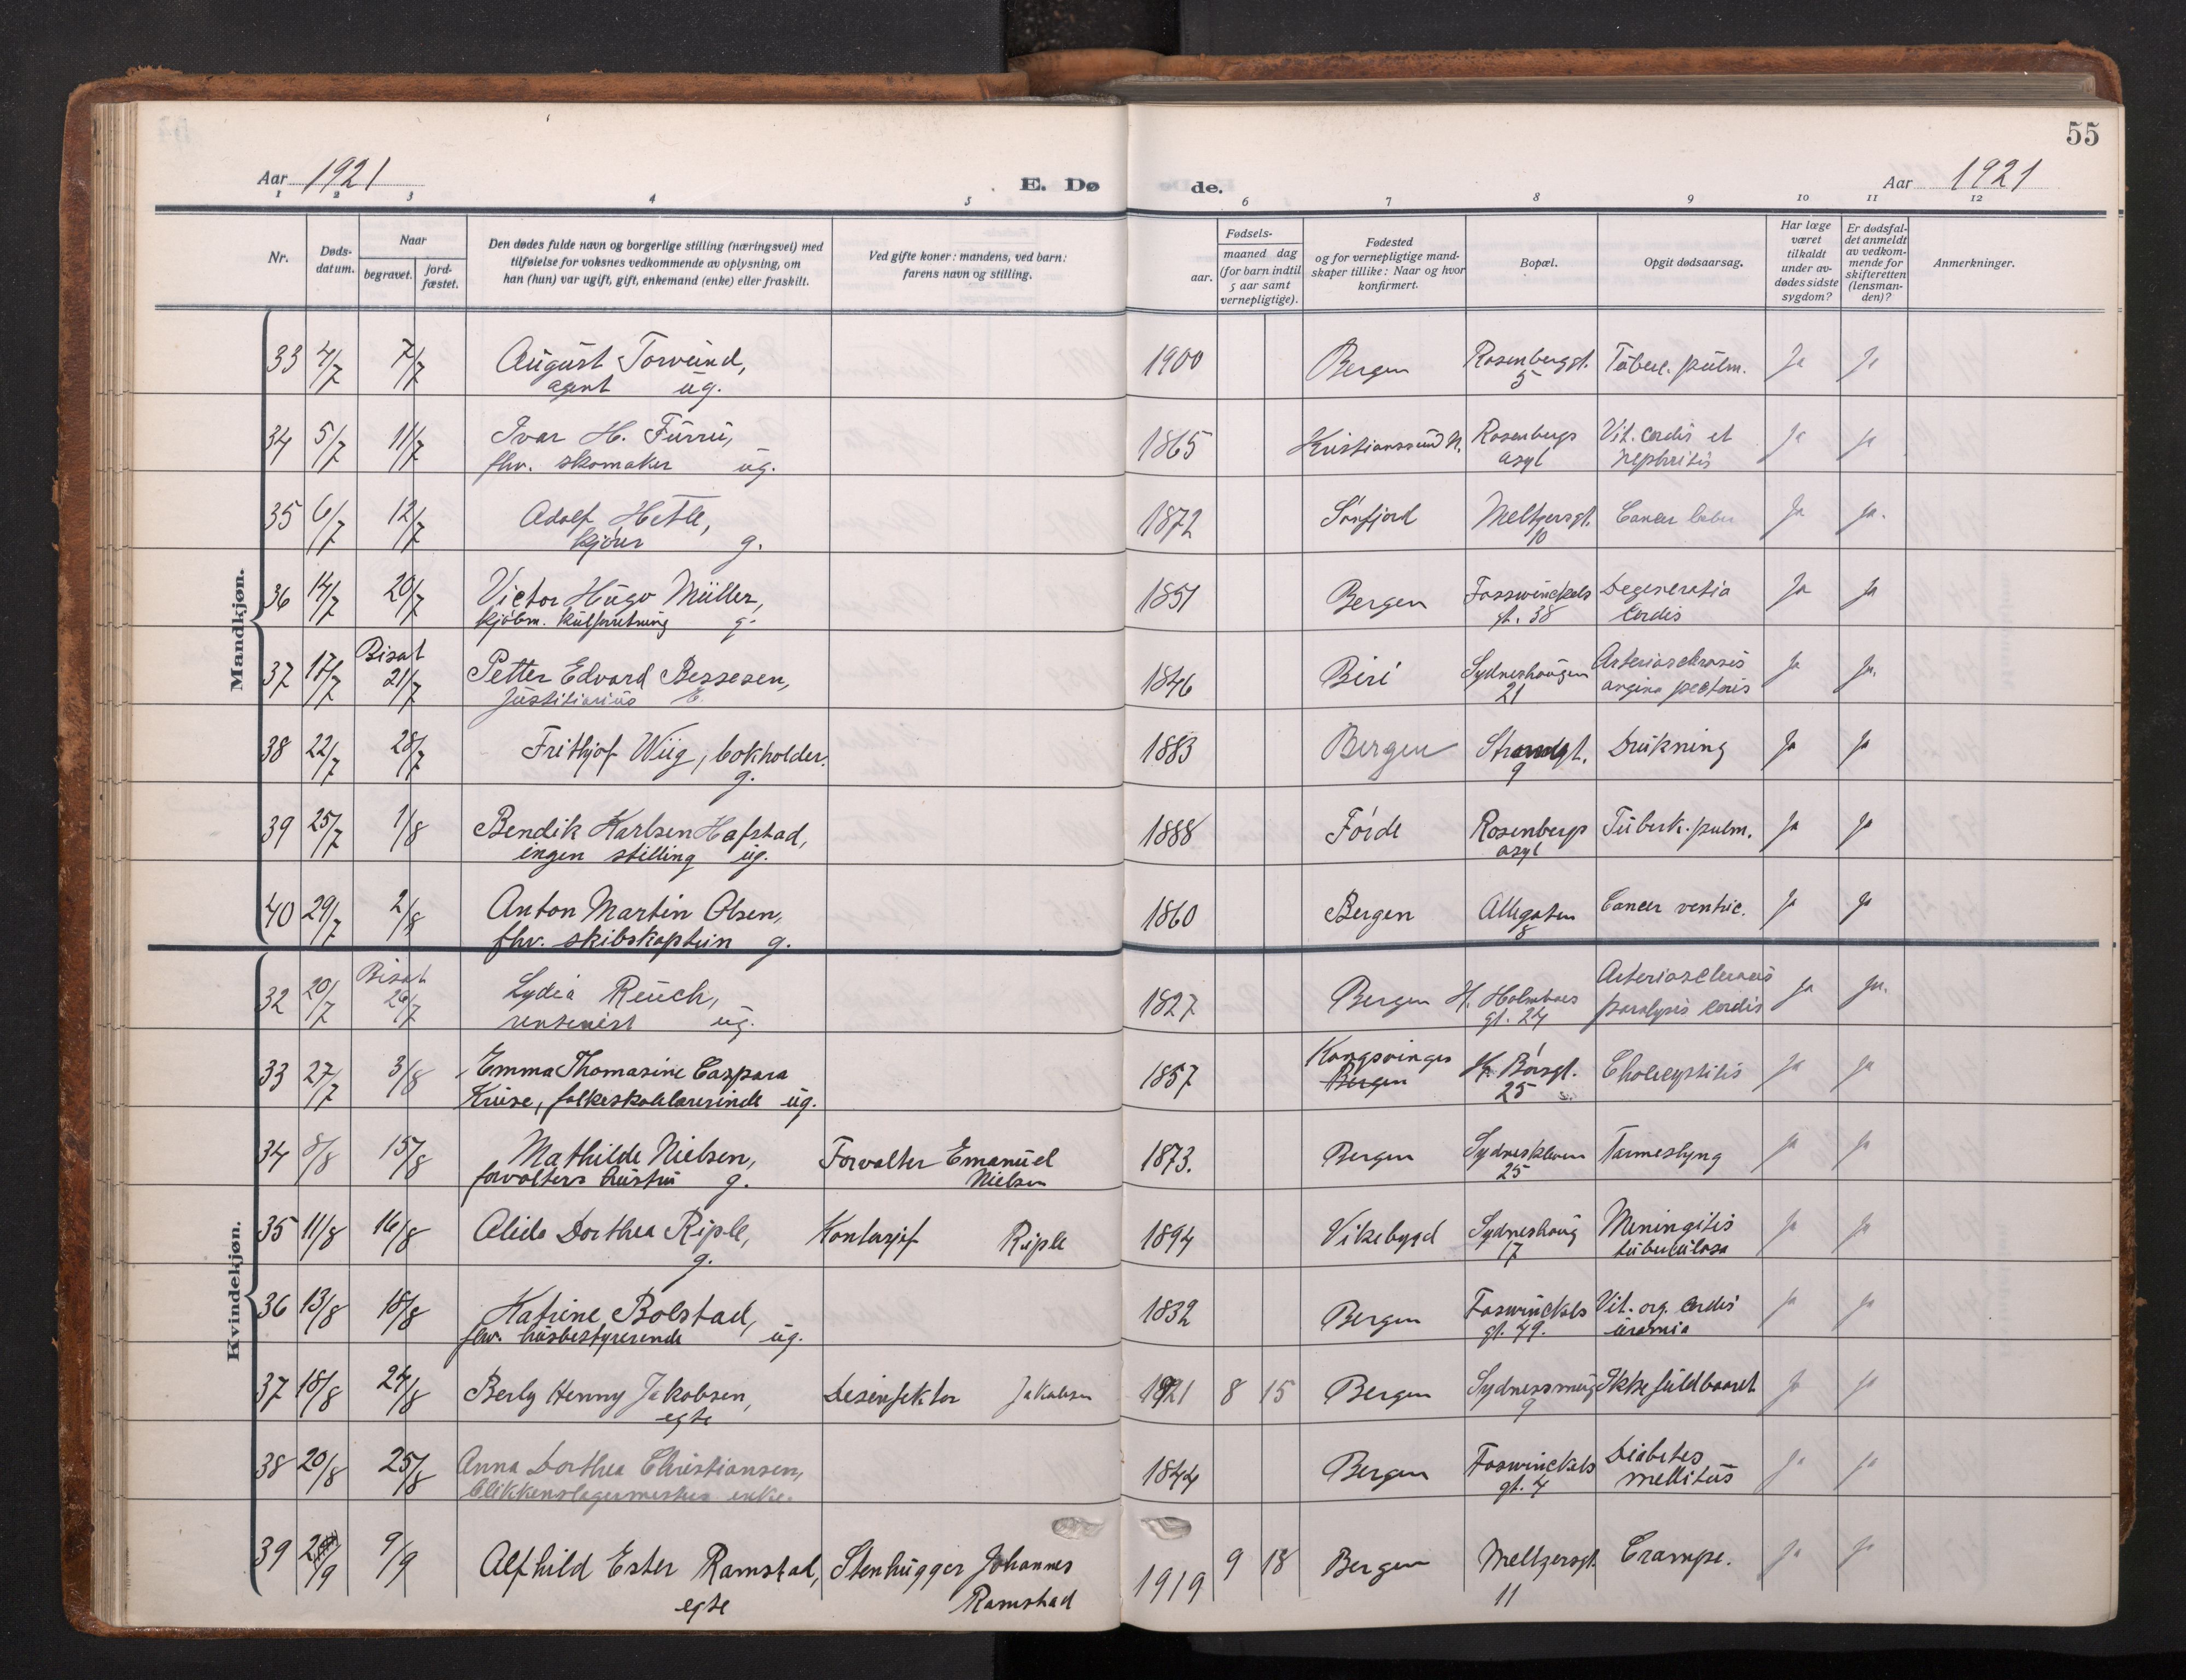 55
Aar 1921
E. Dø
de.
Aar 1921
1 2 3 4 5 6 7 8 9 10 11 12
Nr.
Døds-
datum.
Naar
begravet.
jord-
fæstet.
Den dødes fulde navn og borgerlige stilling (næringsvei) med
tilføielse for voksnes vedkommende av oplysning, om
han (hun) var ugift, gift, enkemand (enke) eller fraskilt.
Ved gifte koner: mandens, ved barn:
farens navn og stilling.
Fødsels-
aar.
maaned dag
(for barn indtil
5 aar samt
vernepligtige).
Fødested
og for vernepligtige mand-
skaper tillike: Naar og hvor
konfirmert.
Bopæl.
Opgit dødsaarsag.
Har læge
været
tilkaldt
under av-
dødes sidste
sygdom?
Er dødsfal-
det anmeldt
av vedkom-
mende for
skifteretten
(lensman-
den)?
Anmerkninger.
Mandkjøn.
33 4/7 7/7 August Torvund, 1900 Bergen Rosenberggt. Tuberc. pulm. Ja Ja
agent ug. 5
34 5/7 11/7 Ivar H. Furru, 1865 Kristianssund N. Rosenbergs Vit. cordis et Ja Ja
fhv. skomaker ug. asyl nephritis
35 6/7 12/7 Adolf Hetle, 1872 Sønfjord Meltzersgt. Cancer Ja Ja.
kjører g. 10
36 14/7 20/7 Victor Hugo Müller, 1851 Bergen Fosswinckels Degeneratia Ja Ja
kjøbm. kulforretning g. gt. 38 Cordis
37 17/7 Bisat 21/7 Petter Edvard Bessesen, 1846 Biri Sydneshaugen Arteriosclerosis Ja Ja.
Justitiarius E. 21 angina pectoris
38 22/7 28/7 Frithjof Wiig, bokholder. 1883 Bergen Strandgt. Drukning Ja Ja
g. 9
39 25/7 1/8 Bendik Karlsen Hafstad, 1888 Førde Rosenbergs Tuberk. pulm. Ja Ja
ingen stilling ug. asyl
40 29/7 2/8 Anton Martin Olsen, 1860 Bergen Allegaten Cancer ventric. Ja Ja
fhv. skibskaptein g. 8
Kvindekjøn.
32 20/7 Bisat 26/7 Lydia Reuch, 1827 Bergen H. Holmboes Arteriosclerosis Ja Ja.
rentenist ug. gt. 24 paralysis cordis
33 27/7 3/8 Emma Thomasine Caspara 1857 Kongsvinger Bergen Kr. Børsgt. Cholecystitis Ja Ja
Kruse, folkeskolelærerinde ug. 25
34 8/8 15/8 Mathilde Nielsen, Forvalter Emanuel 1873. Bergen Sydneskleven Tarmeslyng Ja Ja
forvalters hustru g. Nielsen 25
35 11/8 16/8 Alida Dorthea Riple, Kontorsjef Riple 1894 Vikebygd Sydneshaug Meningitis Ja Ja
g. 17 tuberculosa
36 13/8 18/8 Katrine Bolstad, 1832 Bergen Foswinckels Vit. org. cordis Ja Ja
fhv. husbestyrerinde ug. gt. 49. uremia
37 18/8 24/8 Berly Henny Jakobsen, Desinfektor Jakobsen 1921 8 15 Bergen Sydnessmug Ikke fuldbaaret Ja Ja
egte 9
38 20/8 25/8 Anna Dorthea Christiansen, 1844 Bergen Foswinckels Diabetes Ja Ja
blikkenslagermesters enke. gt. 4 mellitus
39 2/9 9/9 Alfhild Ester Ramstad, Stenhugger Johannes 1919 9 18 Bergen Meltzersgt. Crampe. Ja Ja
egte Ramstad 11